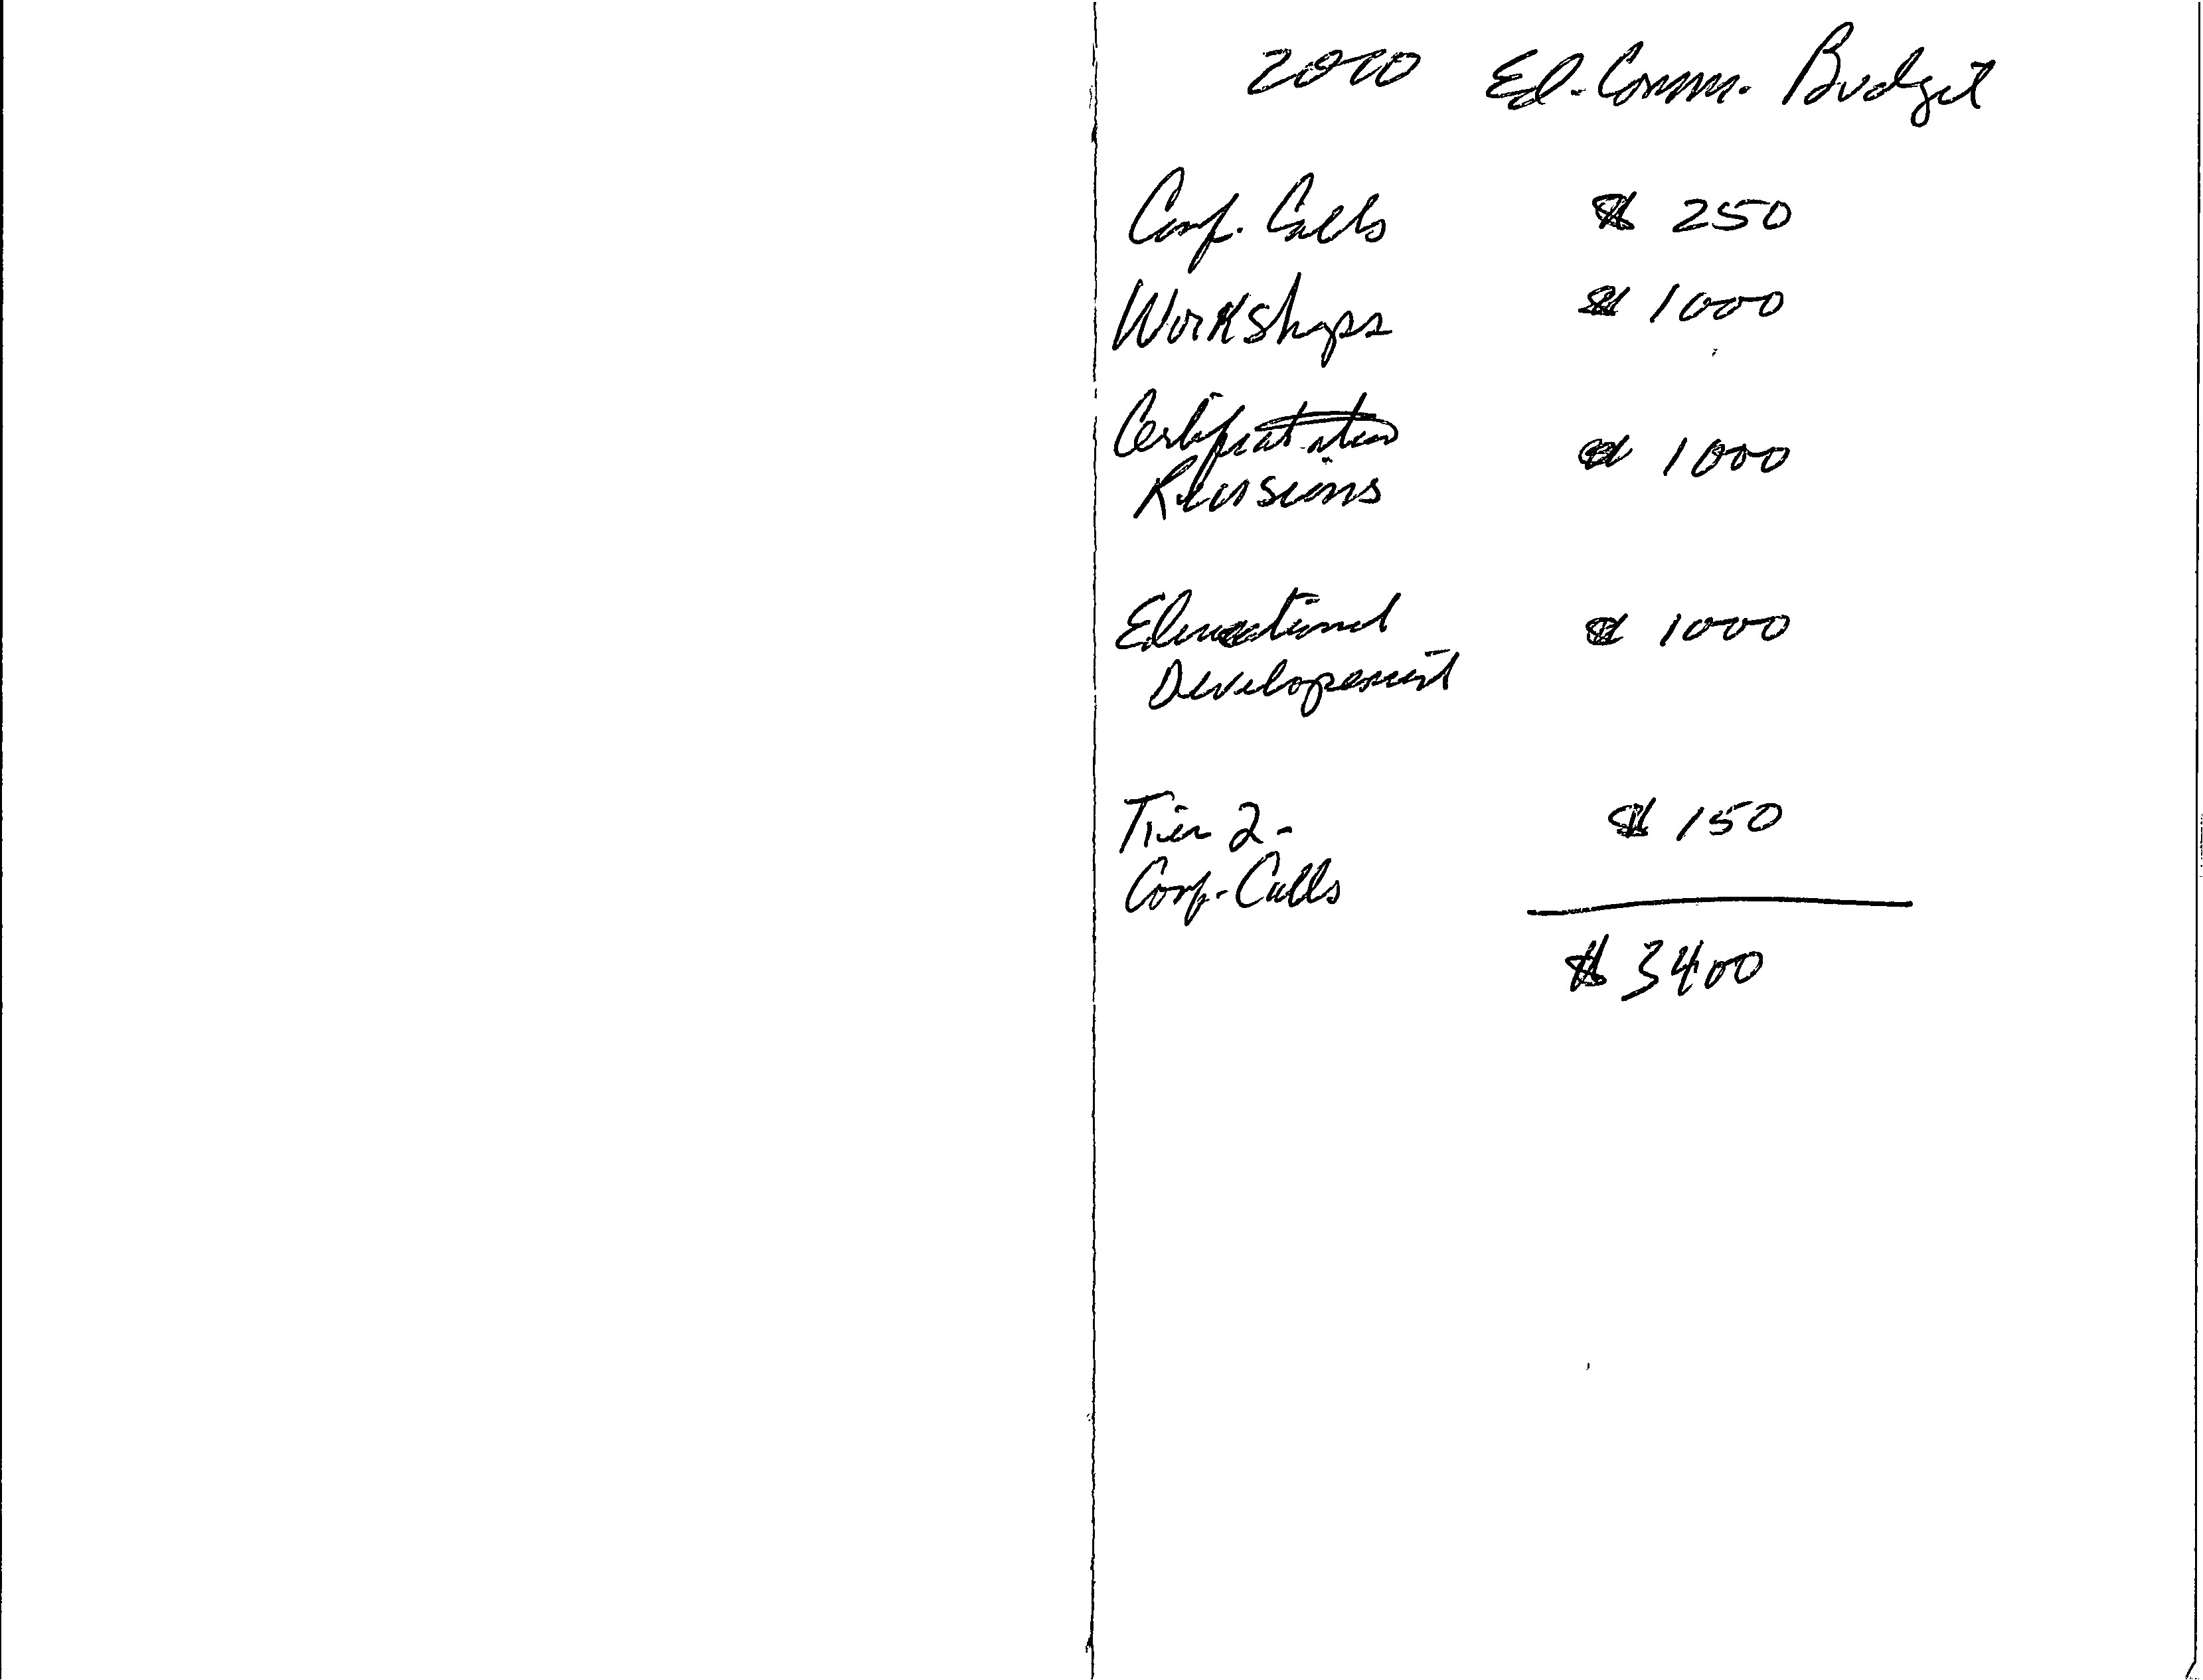 2000 Ed. Comm. Budget
Conf. Calls $ 250
Workshops $ 1000
Certification $ 1000
Revisions
Educational $ 1000
Developement
Tier 2 - $ 150
Conf. Calls
$ 3400